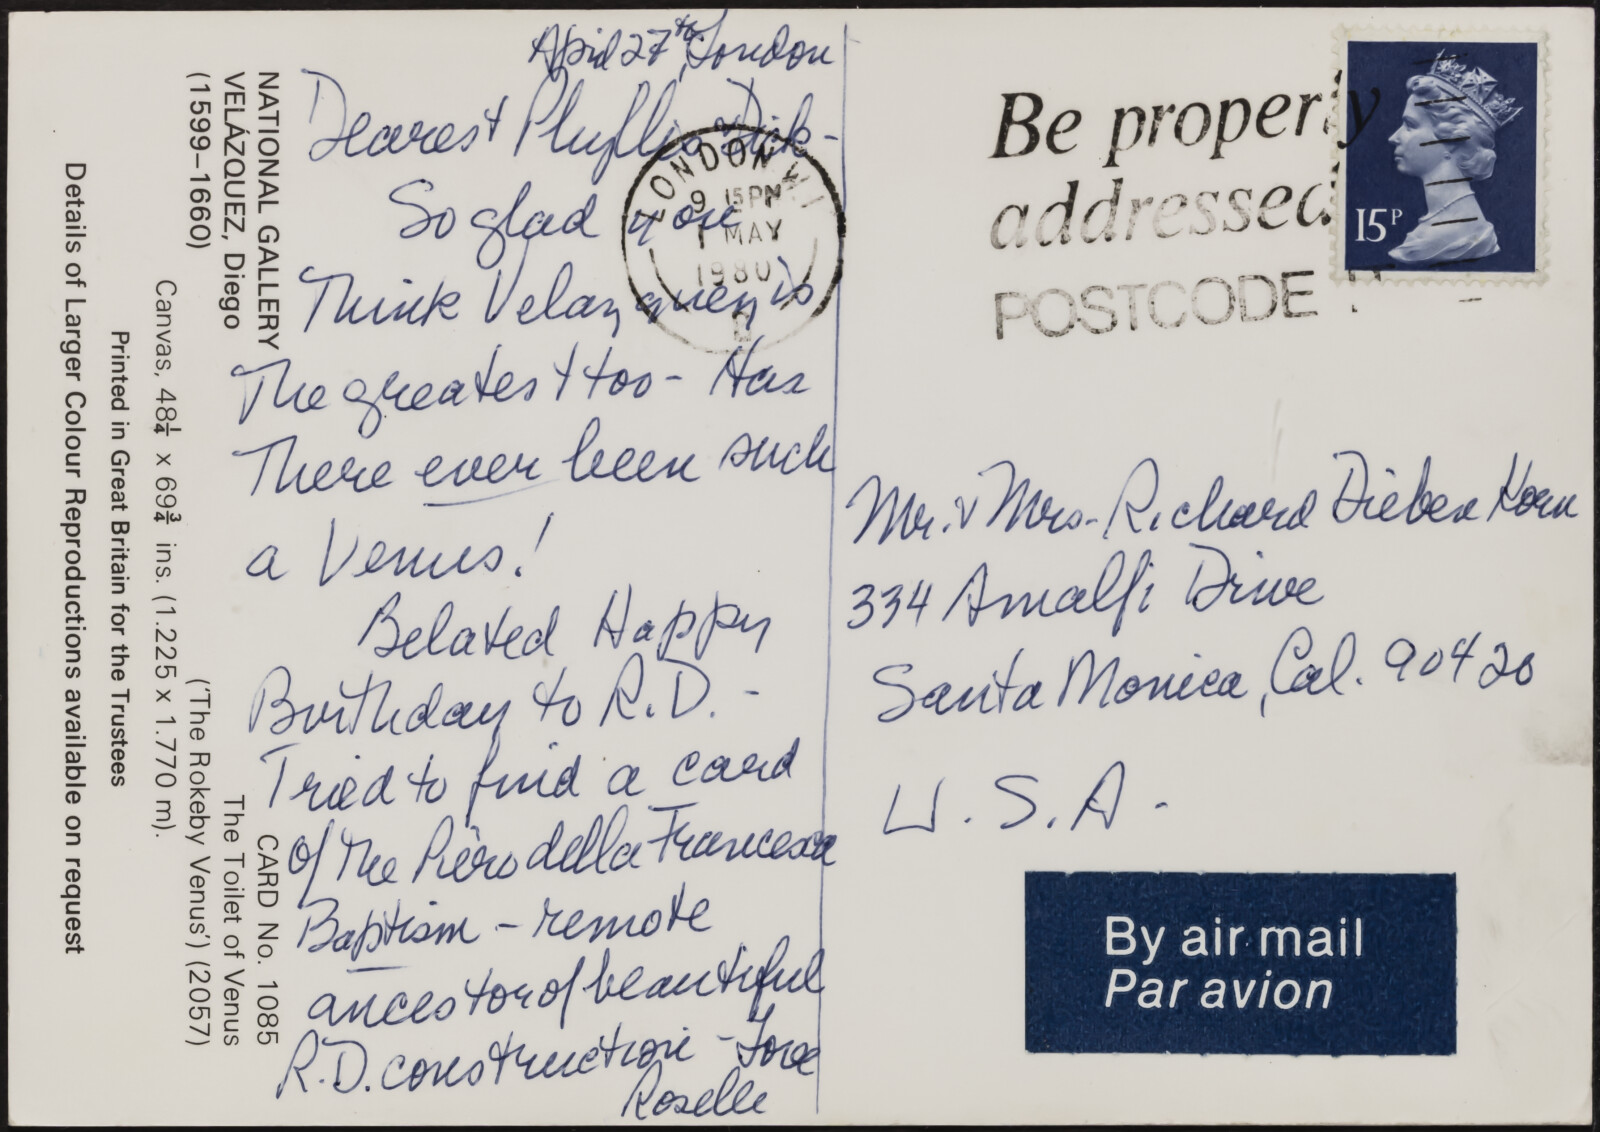 April 27th, London
Dearest Phyllis, Dick -
So glad you
Think Velazquez is
The greatest too - Has
There ever been such
a Venus!
Belated Happy
Birthday to R.D. -
Tried to find a card
of the Piero della Francesca
Baptism - remote
ancestor of beautiful
R.D. construction - Love
Roselle
LONDON W.1
9 15 PM
1 MAY
1980
Be properly
addressed
POSTCODE IT
15P
Mr. & Mrs. Richard Diebenkorn
334 Amalfi Drive
Santa Monica, Cal. 90420
U.S.A.
By air mail
Par avion
NATIONAL GALLERY CARD No. 1085
VELÁZQUEZ, Diego The Toilet of Venus
(1599–1660) ('The Rokeby Venus') (2057)
Canvas, 48¼ x 69¾ ins. (1.225 x 1.770 m).
Printed in Great Britain for the Trustees
Details of Larger Colour Reproductions available on request